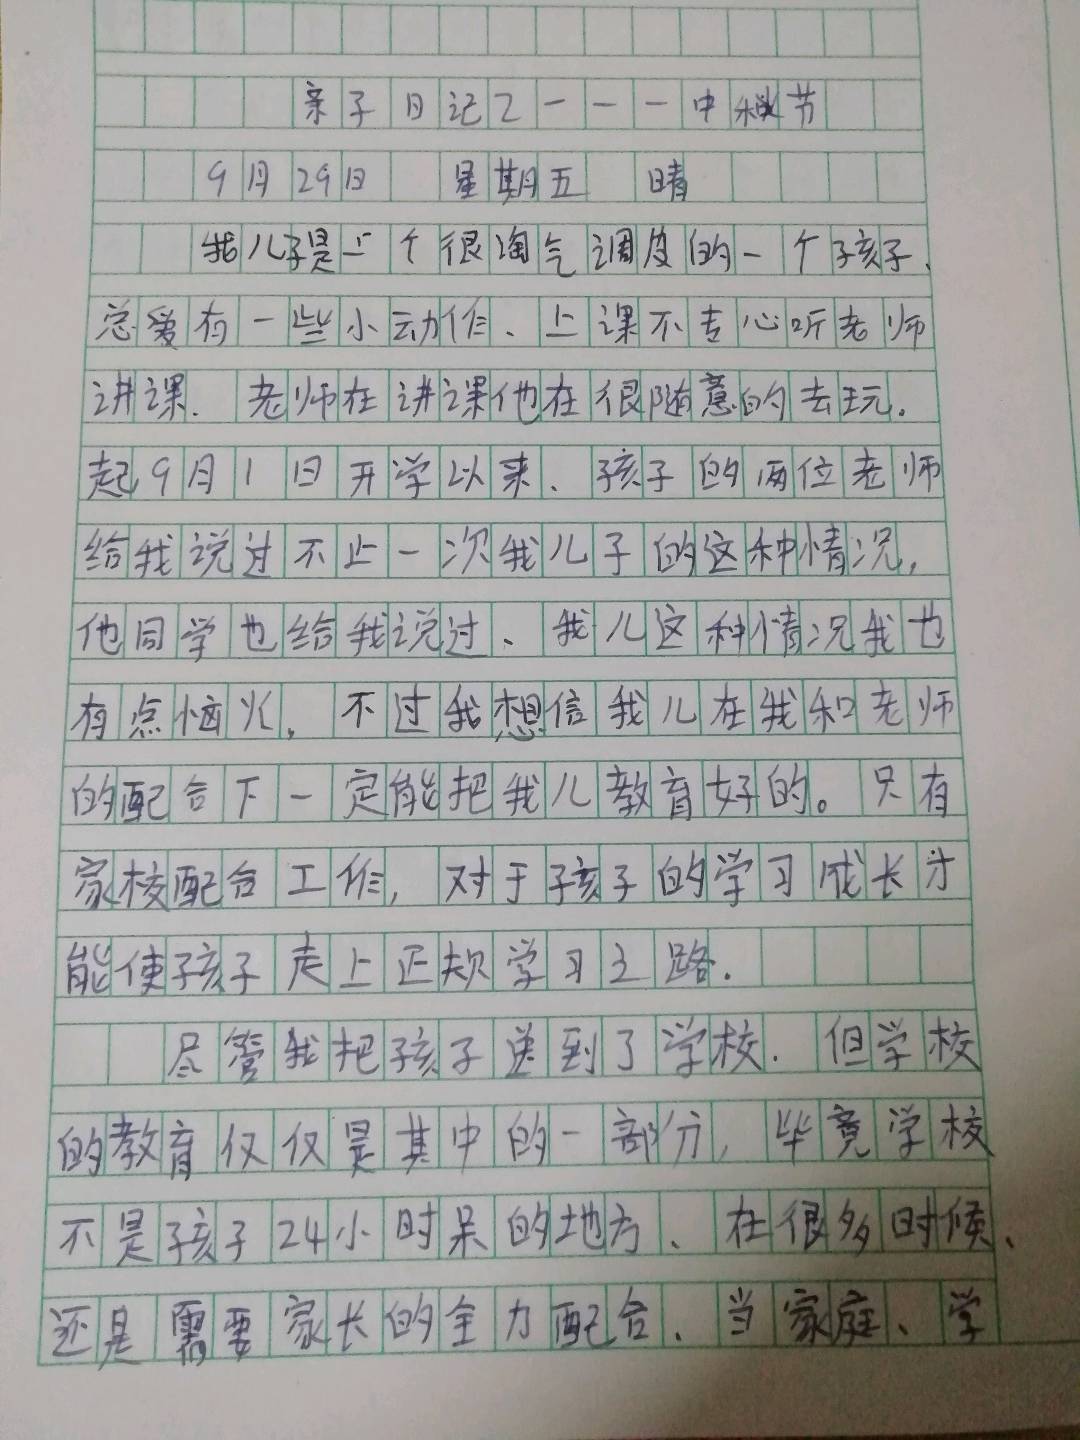 亲子日记乙一一一中秋节
9月29日 星期五 晴
我儿子是上个很淘气调皮的一个孩子、
总爱有一些小动作、上课不专心听老师
讲课. 老师在讲课他在很随意的去玩.
起9月1日开学以来、孩子的两位老师
给我说过不止一次我儿子的这种情况,
他同学也给我说过、我儿这种情况我也
有点恼火, 不过我想信我儿在我和老师
的配合下一定能把我儿教育好的。只有
家校配合工作, 对于孩子的学习成长才
能使孩子走上正规学习之路.
尽管我把孩子送到了学校. 但学校
的教育仅仅是其中的一部分, 毕竟学校
不是孩子24小时呆的地方、在很多时候、
还是需要家长的全力配合、当家庭、学